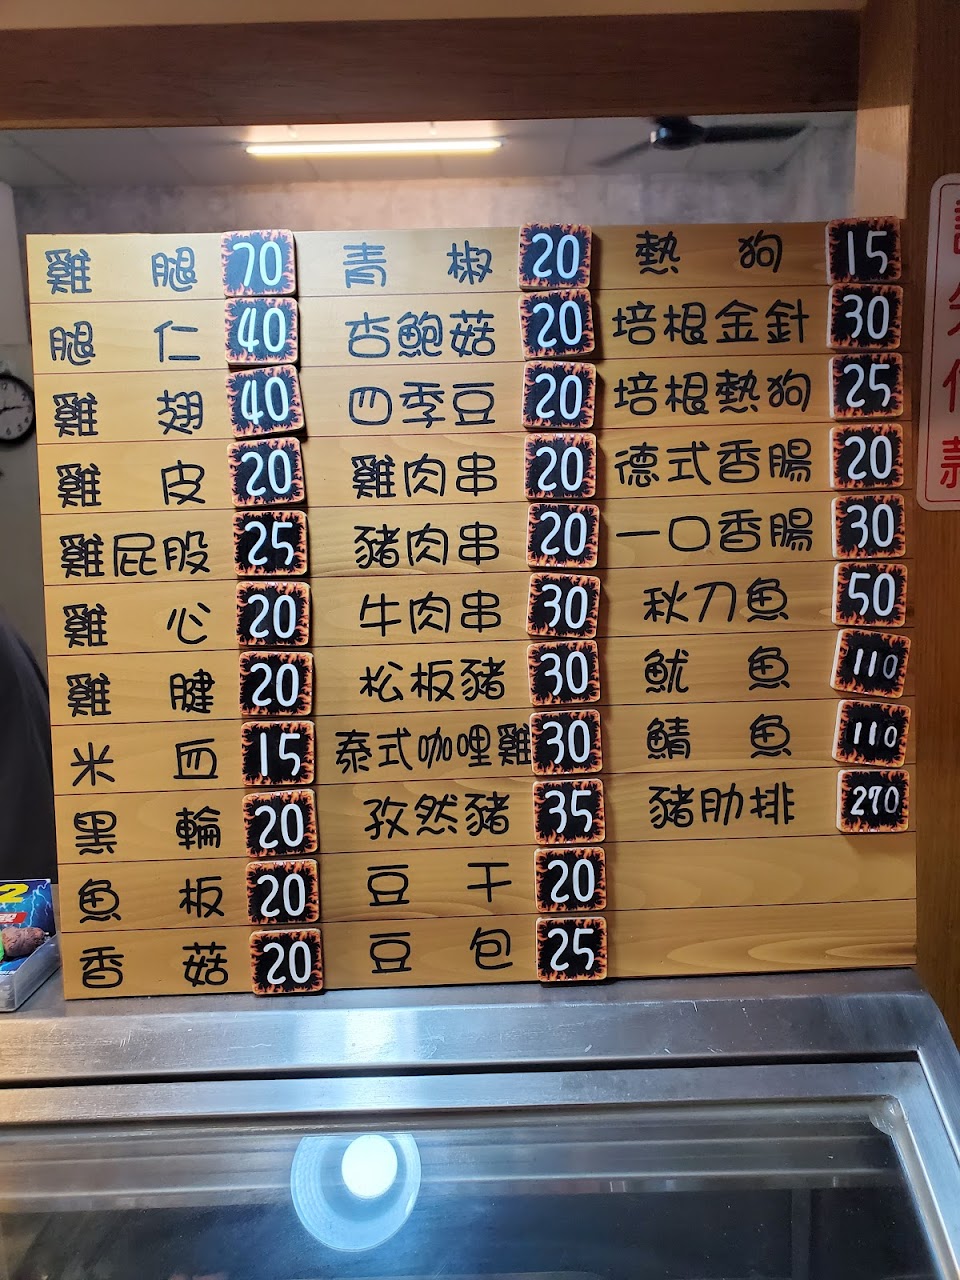 雞腿 70
腿仁 40
雞翅 40
雞皮 20
雞屁股 25
雞心 20
雞腱 20
米血 15
黑輪 20
魚板 20
香菇 20
青椒 20
杏鮑菇 20
四季豆 20
雞肉串 20
豬肉串 20
牛肉串 30
松板豬 30
泰式咖哩雞 30
孜然豬 35
豆干 20
豆包 25
熱狗 15
培根金針 30
培根熱狗 25
德式香腸 20
一口香腸 30
秋刀魚 50
魷魚 110
鯖魚 110
豬肋排 270
2